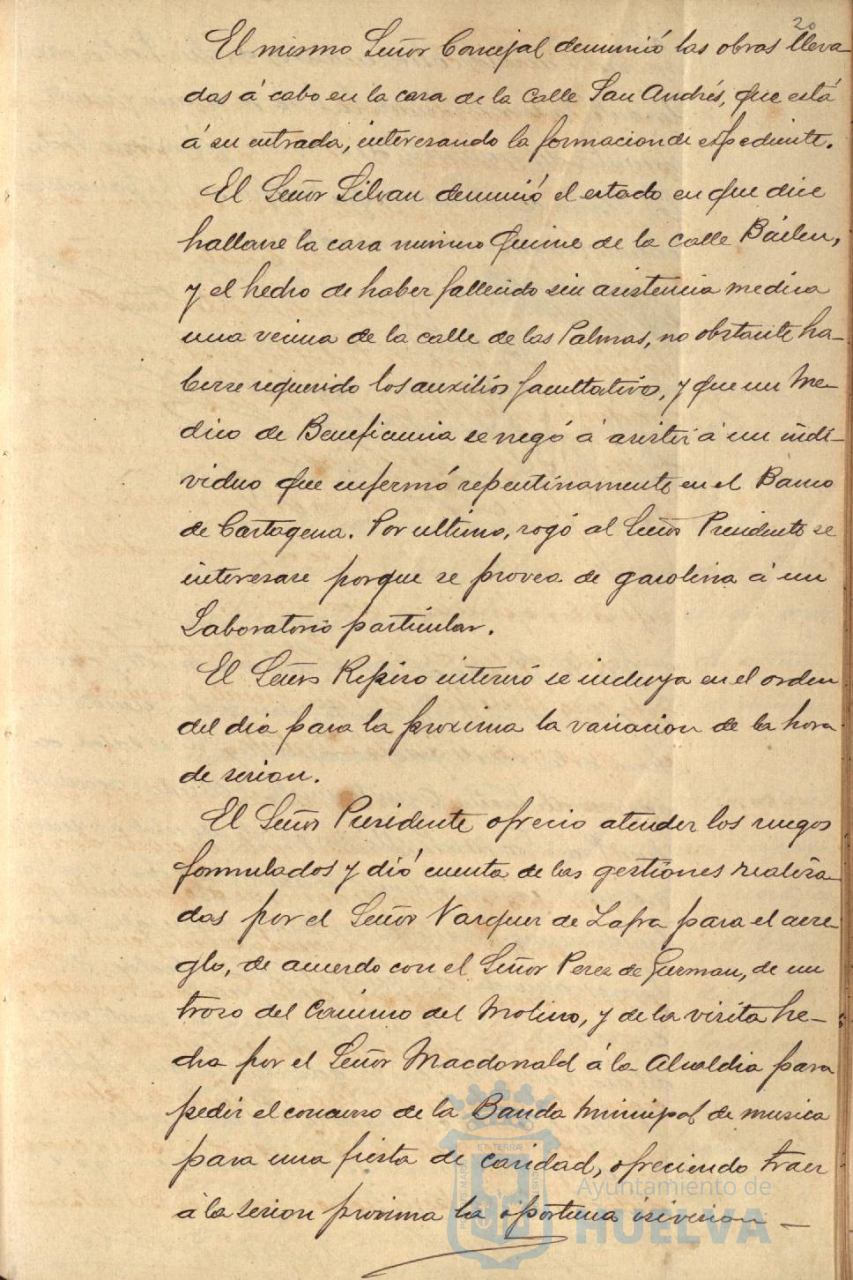 20
El mismo Señor Concejal denunció las obras lleva-
das á cabo en la casa de la calle San Andrés, que está
á su entrada, interesando la formacion de espediente.
El Señor Silvan denunció el estado en que dice
hallarse la casa numero quince de la calle Bailen,
y el hecho de haber fallecido sin asistencia medica
una vecina de la calle de las Palmas, no obstante ha-
berse requerido los auxilios facultativos, y que un Me-
dico de Beneficencia se negó á asistir á un indi-
viduo que enfermó repentinamente en el Banco
de Cartagena. Por ultimo, rogó al Señor Presidente se
interesase porque se provea de gasolina á un
Laboratorio particular.
El Señor Repiso interesó se incluya en el orden
del dia para la proxima la variacion de la hora
de sesion.
El Señor Presidente ofrecio atender los ruegos
formulados y dió cuenta de las gestiones realiza-
das por el Señor Vazquez de Zafra para el arre-
glo, de acuerdo con el Señor Perez de Guzman, de un
trozo del Camino del Molino, y de la visita he-
cha por el Señor Macdonald á la Alcaldia para
pedir el concurso de la Banda Municipal de musica
para una fiesta de caridad, ofreciendo traer
á la sesion proxima la oportuna
Ayuntamiento de
HUELVA